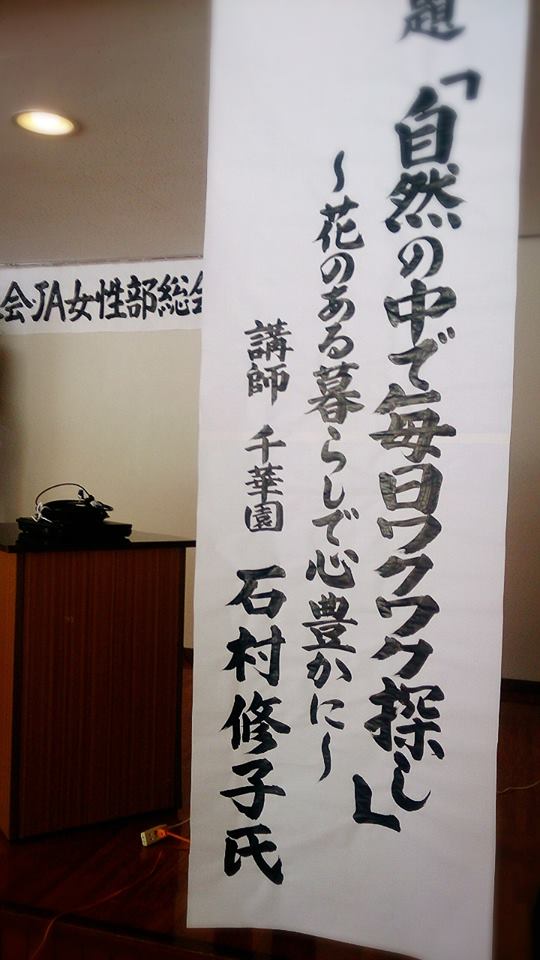 題
「自然の中で毎日ワクワク探し」
〜花のある暮らしで心豊かに〜
講師 千華園 石村修子氏
会JA女性部総会